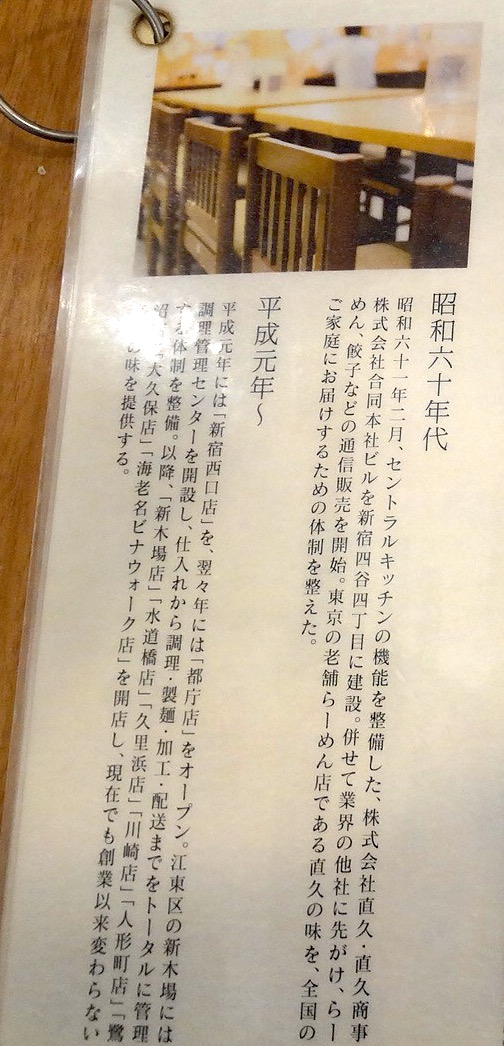 昭和六十年代
昭和六十一年二月、セントラルキッチンの機能を整備した、株式会社直久・直久商事
株式会社合同本社ビルを新宿四谷四丁目に建設。併せて業界の他社に先がけ、らー
めん、餃子などの通信販売を開始。東京の老舗らーめん店である直久の味を、全国の
ご家庭にお届けするための体制を整えた。
平成元年〜
平成元年には「新宿西口店」を、翌々年には「都庁店」をオープン。江東区の新木場には
調理管理センターを開設し、仕入れから調理・製麺・加工・配送までをトータルに管理
する体制を整備。以降、「新木場店」「水道橋店」「久里浜店」「川崎店」「人形町店」「鷺
沼店」「大久保店」「海老名ビナウォーク店」を開店し、現在でも創業以来変わらない
の味を提供する。